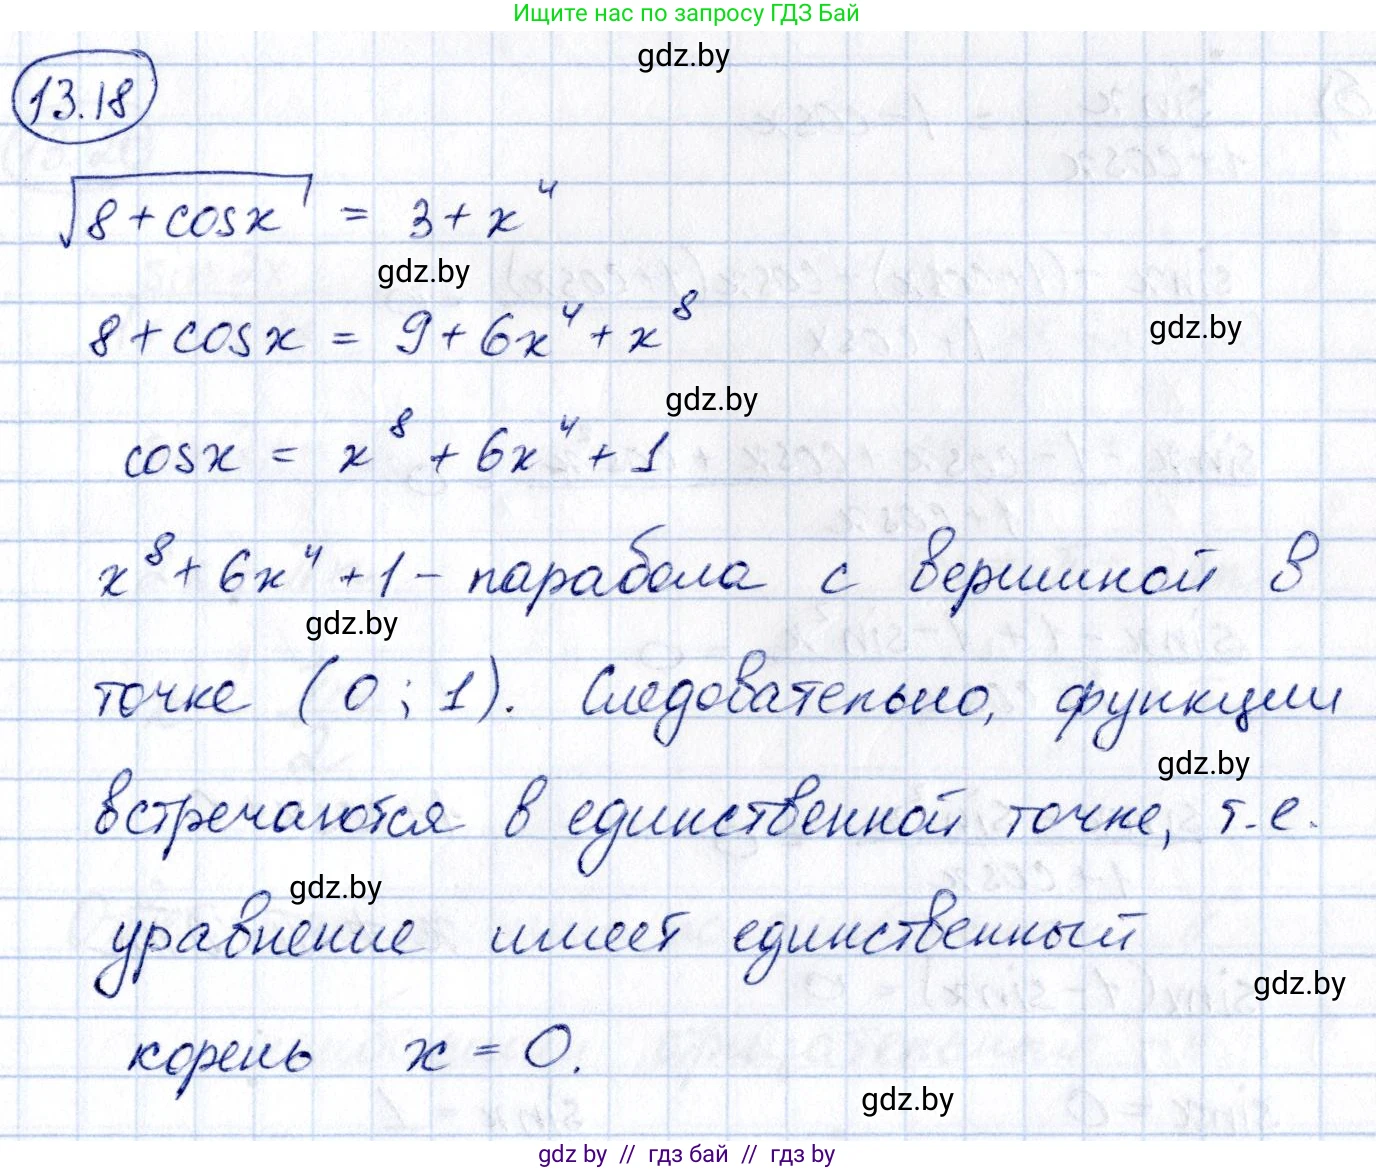 Ищите нас по запросу ГДЗ Бай
gdz.by
13.18
√8+cosx = 3+x⁴
gdz.by
8+cosx = 9+6x⁴+x⁸
gdz.by
gdz.by
cosx = x⁸+6x⁴+1
x⁸+6x⁴+1 - парабола с вершиной в
gdz.by
точке (0; 1). Следовательно, функции
gdz.by
встречаются в единственной точке, т.е.
gdz.by
уравнение имеет единственный
gdz.by
корень x = 0.
gdz.by
gdz by // гдз бай // гдз by